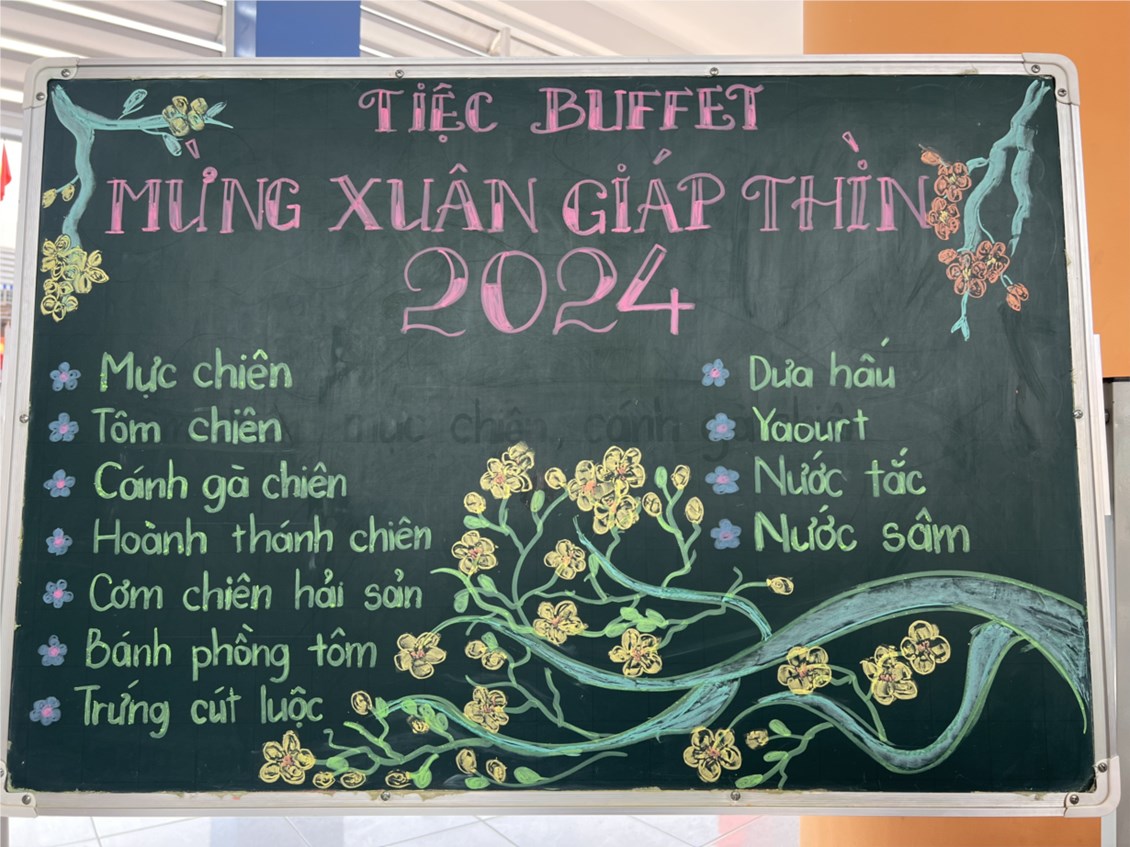 TIỆC BUFFET
MỪNG XUÂN GIÁP THÌN
2024
Mực chiên
Tôm chiên
Cánh gà chiên
Hoành thánh chiên
Cơm chiên hải sản
Bánh phồng tôm
Trứng cút luộc
Dưa hấu
Yaourt
Nước tắc
Nước sâm